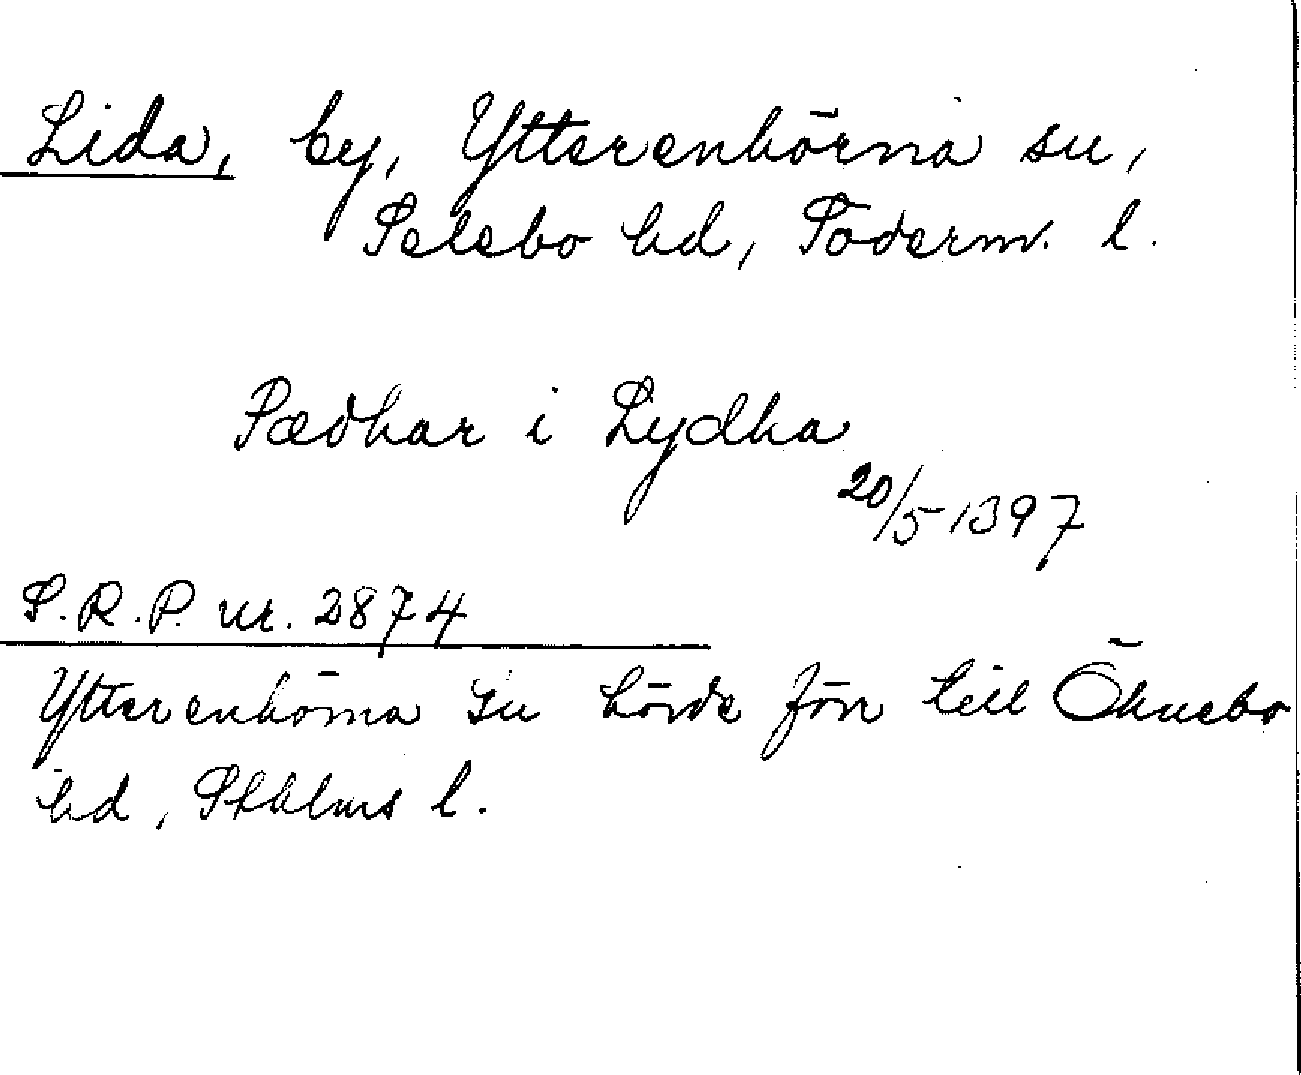 Lida, by, Ytterenhörna sn,
Selebo hd, Söderm. l.
Pædhar i Lydha
20/5 1397
S.R.P. nr. 2874
Ytterenhörna sn hörde förr till Öknebo
hd, Sthlms l.